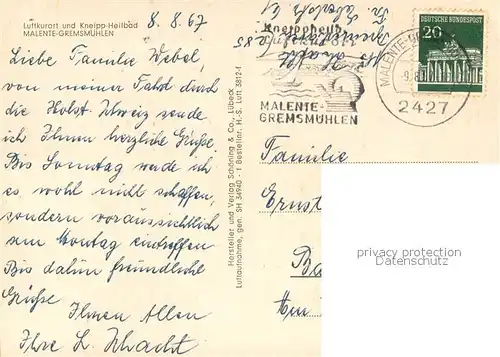 Luftkurort und Kneipp-Heilbad
MALENTE-GREMSMÜHLEN
8.8.67
Liebe Familie Webel
von meiner Fahrt durch
die Holst. Schweiz sende
ich Ihnen herzliche Grüße.
Bis Sonntag werde ich
es wohl nicht schaffen,
sondern voraussichtlich
am Montag eintreffen
Bis dahin freundliche
Grüße
Ihnen Allen
Ihre L. Schacht
Hersteller und Verlag Schöning & Co., Lübeck
Luftaufnahme, gen. SH 34940 - 1 Bestellnr. H.-S. Luft 3812-1
Kneippheil
MALENTE-
GREMSMÜHLEN
DEUTSCHE BUNDESPOST
20
2427
Familie
Ernst
privacy protection
Datenschutz